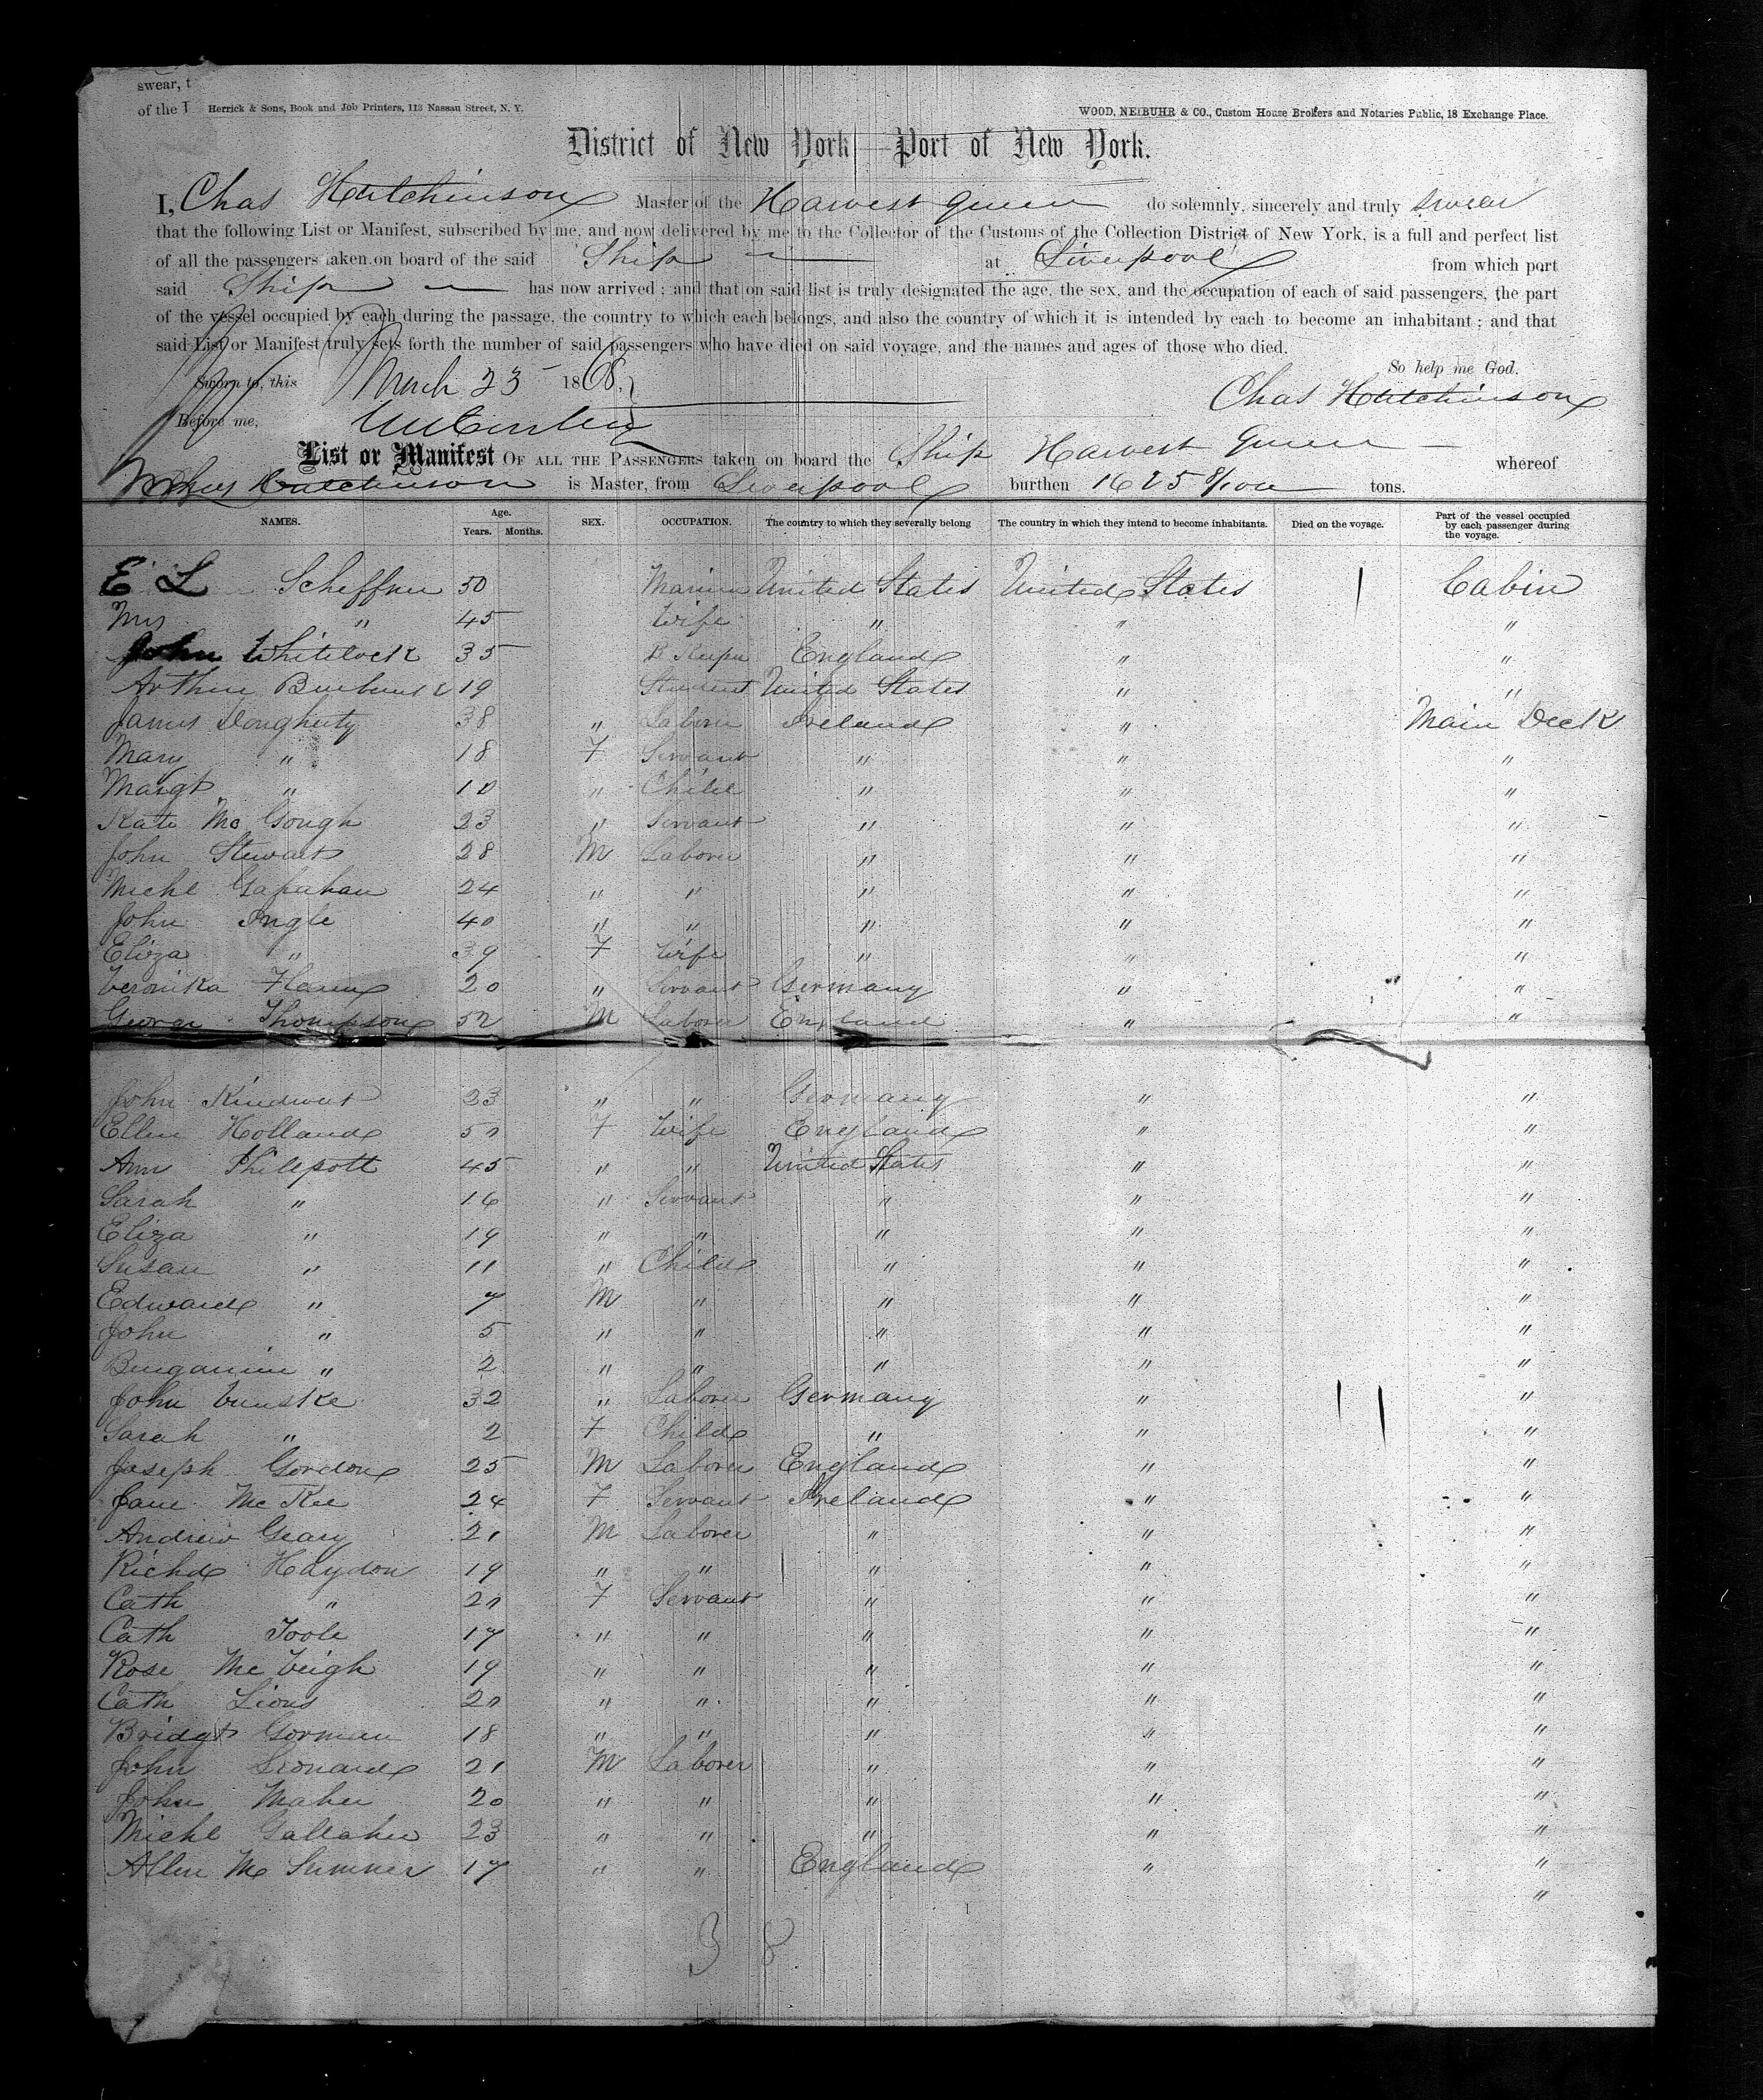 swear, t
of the I
Herrick & Sons, Book and Job Printers, 113 Nassau Street, N. Y.
WOOD, NEIBUHR & CO., Custom House Brokers and Notaries Public, 18 Exchange Place.
District of New York—Port of New York.
I, Chas Hutchinson Master of the Harvest Queen do solemnly, sincerely and truly swear
that the following List or Manifest, subscribed by me, and now delivered by me to the Collector of the Customs of the Collection District of New York, is a full and perfect list
of all the passengers taken on board of the said Ship at Liverpool from which port
said Ship has now arrived; and that on said list is truly designated the age, the sex, and the occupation of each of said passengers, the part
of the vessel occupied by each during the passage, the country to which each belongs, and also the country of which it is intended by each to become an inhabitant; and that
said List or Manifest truly sets forth the number of said passengers who have died on said voyage, and the names and ages of those who died.
So help me God.
Sworn to, this March 23 1868.
Chas Hutchinson
Before me,
List or Manifest OF ALL THE PASSENGERS taken on board the Ship Harvest Queen whereof
Hutchinson is Master, from Liverpool burthen 1625 8/100 tons.
NAMES. Age. Years. Months. SEX. OCCUPATION. The country to which they severally belong The country in which they intend to become inhabitants. Died on the voyage. Part of the vessel occupied by each passenger during the voyage.
E L Scheffner 50 Mariner United States United States Cabin
Mrs " 45 Wife " " "
John Whitelock 35 B Keeper England " "
Arthur 19 Student United States " "
James Dougherty 38 " Laborer Ireland " Main Deck
Mary " 18 F Servant " " "
Margt " 10 " Child " " "
Kate Mc Gough 23 " Servant " " "
John Stewart 28 M Laborer " " "
Michl 24 " " " " "
John Ingle 40 " " " " "
Eliza " 39 F Wife " " "
Veronika 20 " Servant Germany " "
George Thompson 52 M Laborer England " "
John 23 " " Germany " "
Ellen Holland 50 F Wife England " "
Ann Philpott 45 " " United States " "
Sarah " 16 " Servant " " "
Eliza " 19 " " " " "
Susan " 11 " Child " " "
Edward " 7 M " " " "
John " 5 " " " " "
Bengamin " 2 " " " " "
John Vunske 32 " Laborer Germany " "
Sarah " 2 F Child " " "
Joseph Gordon 25 M Laborer England " "
Jane Mc Kee 24 F Servant Ireland " "
Andrew Geary 21 M Laborer " " "
Richd Haydon 19 " " " " "
Cath " 20 F Servant " " "
Cath Toole 17 " " " " "
Rose Mc Veigh 19 " " " " "
Cath Lions 20 " " " " "
Bridgt Gorman 18 " " " " "
John Leonard 21 M Laborer " " "
John Maher 20 " " " " "
Michl Gallaher 23 " " " " "
Allen Mc Sumner 17 " " England " "
"
38